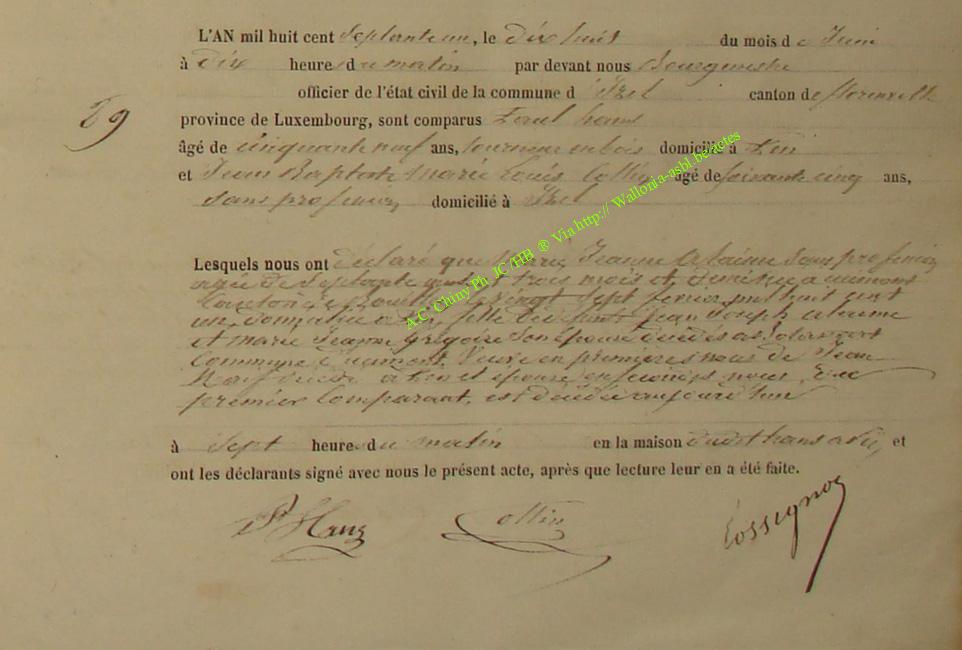 L'AN mil huit cent Septante un, le dix huit du mois de Juin
à Dix heures du matin par devant nous Bourgmestre
officier de l'état civil de la commune d'Izel canton de florenville
29
province de Luxembourg, sont comparus Paul hans
âgé de cinquante neuf ans, tourneur en bois domicilié à Pin
et Jean Baptiste Marie Louis Collin âgé de soixante cinq ans,
sans profession domicilié à Izel
Lesquels nous ont déclaré que Marie Jeanne Alaime sans profession
agée de Septante ans trois mois et née a
le vingt Sept fevrier mil huit cent
un, domiciliée a Pin, fille de Jean Joseph alaime
et Marie Jeanne grégoire son épouse décédés a
Commune Veuve en premieres noces de Jean
décédé a Pin et épouse en secondes noces du
premier Comparant, est décédée aujourd'hui
à Sept heures du matin en la maison dudit hans a Pin et
ont les déclarants signé avec nous le présent acte, après que lecture leur en a été faite.
P Hans Collin Rossignon
A.C. Cluny Ph JC/HB ® Via http:// Wallonia-asbl.be/actes